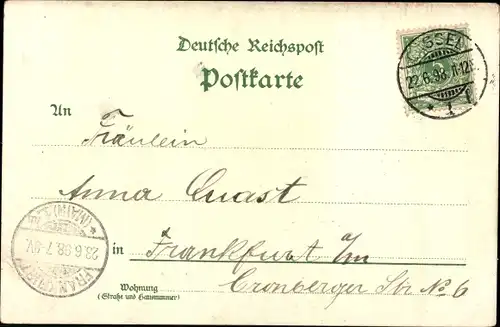 Deutsche Reichspost
Postkarte
ESSEN
22.6.98. 11-12
* 1 f
An
Fräulein
Anna Quast
in Frankfurt a/m
Cronberger Str № 6
Wohnung
(Straße und Hausnummer)
FRANKFURT
23.6.98.7-8V.
(MAIN)